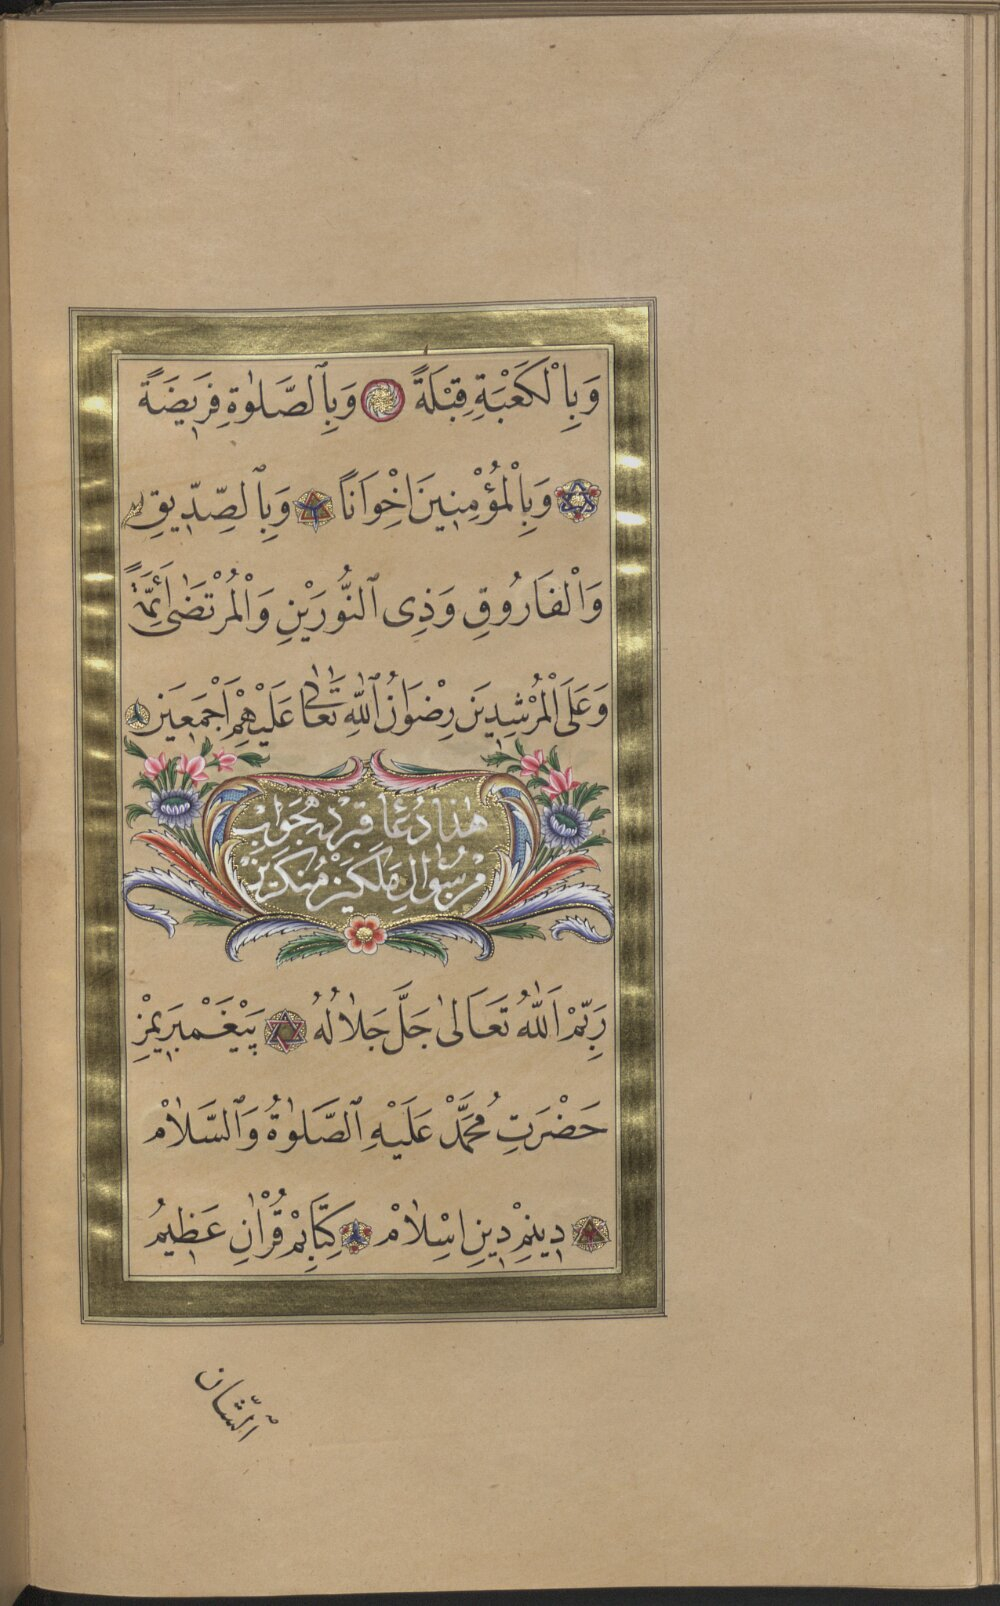 وَبِالْكَعْبَةِ قِبْلَةً وَبِٱلصَّلٰوةِ فَرِيضَةً
وَبِالْمُؤْمِنِينَ اِخْوَانًا وَبِٱلصِّدِّيقِ
وَالْفَارُوقِ وَذِى ٱلنُّورَيْنِ وَالْمُرْتَضٰى اَئِمَّةً
وَعَلَى الْمُرْشِدِينَ رِضْوَانُ ٱللّٰهِ تَعَالٰى عَلَيْهِمْ اَجْمَعِينَ
هٰذَا دُعَا قَبْرْدَه جَوَابْ
سُوَالِ مَلَكَيْنْ مُنْكَرَيْنْ
رَبِّمْ اَللّٰهُ تَعَالٰى جَلَّ جَلَالُهُ پَيْغَمْبَرِيمْزِ
حَضْرَتِ مُحَمَّدْ عَلَيْهِ ٱلصَّلٰوةُ وَٱلسَّلَامْ
دِينِمْ دِينِ اِسْلَامْ كِتَابِمْ قُرْاٰنِ عَظِيمُ
الشّان